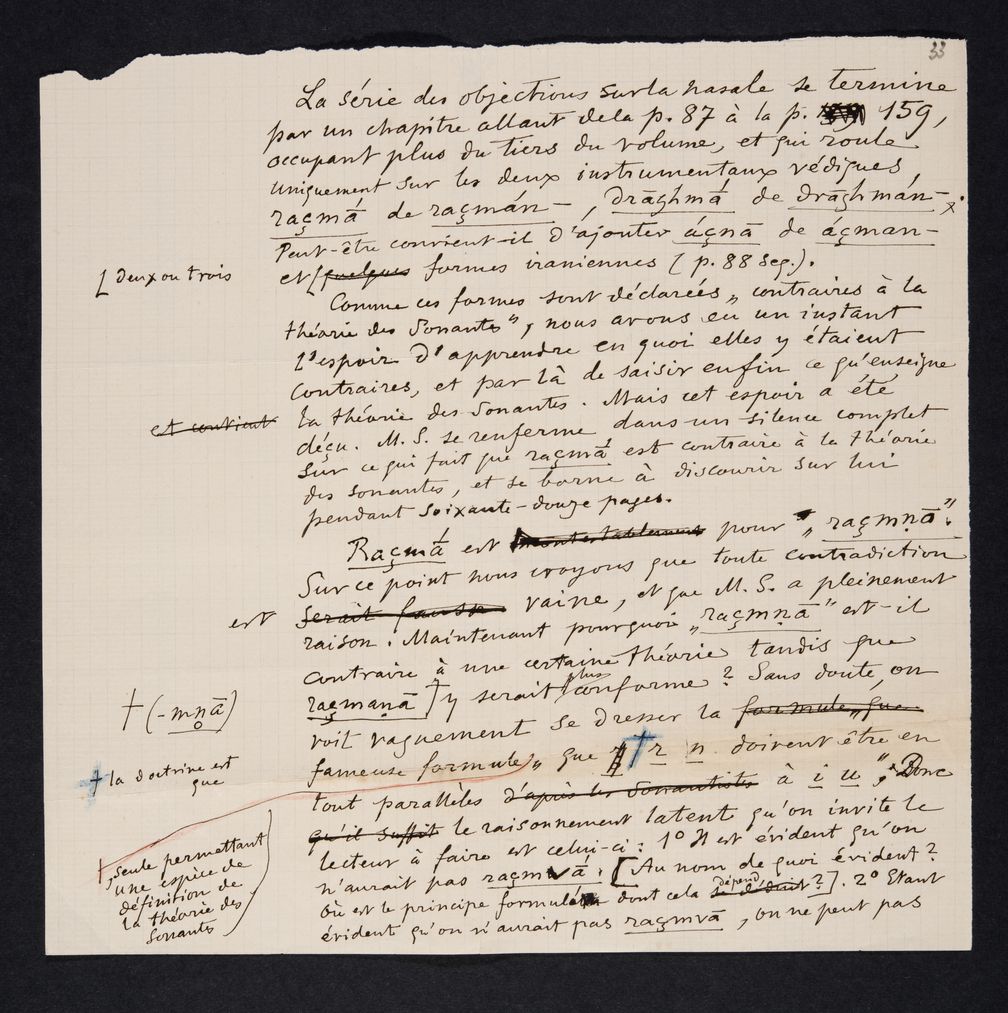 33
La série des objections sur la nasale se termine
par un chapitre allant de la p. 87 à la p. 159,
occupant plus du tiers du volume, et qui roule
uniquement sur les deux instrumentaux védiques,
raçmā́ de raçmán–, drāghmā́ de drāghmán–.
x
Peut-être convient-il d'ajouter áçnā de áçman–
[ deux ou trois
et [ quelques formes iraniennes (p. 88 seq.).
Comme ces formes sont déclarées „contraires à la
théorie des Sonantes", nous avons eu un instant
l'espoir d'apprendre en quoi elles y étaient
contraires, et par là de saisir enfin ce qu'enseigne
et contient
la théorie des Sonantes. Mais cet espoir a été
déçu. M. S. se renferme dans un silence complet
sur ce qui fait que raçmā́ est contraire à la théorie
des sonantes, et se borne à discourir sur lui
pendant soixante-douze pages.
Raçmā́ est incontestablement pour „raçmṇā".
Sur ce point nous croyons que toute contradiction
est
serait fausse vaine, et que M. S. a pleinement
raison. Maintenant pourquoi „raçmṇā" est-il
contraire à une certaine théorie tandis que
† (-mn̥ā)
raçmaṇā † y serait plus conforme ? Sans doute, on
voit vaguement se dresser la formule „que
† la doctrine est
que
fameuse formule „que † r n doivent être en
tout parallèles d'après les Sonantistes à i u". Donc
†, seule permettant
une espèce de
définition de
la théorie des
Sonantes
qu'il suffit le raisonnement latent qu'on invite le
lecteur à faire est celui-ci : 1º Il est évident qu'on
n'aurait pas raçmvā : [Au nom de quoi évident ?
Où est le principe formulé dont cela dépend se déduit ?]. 2º Etant
évident qu'on n'aurait pas raçmvā, on ne peut pas